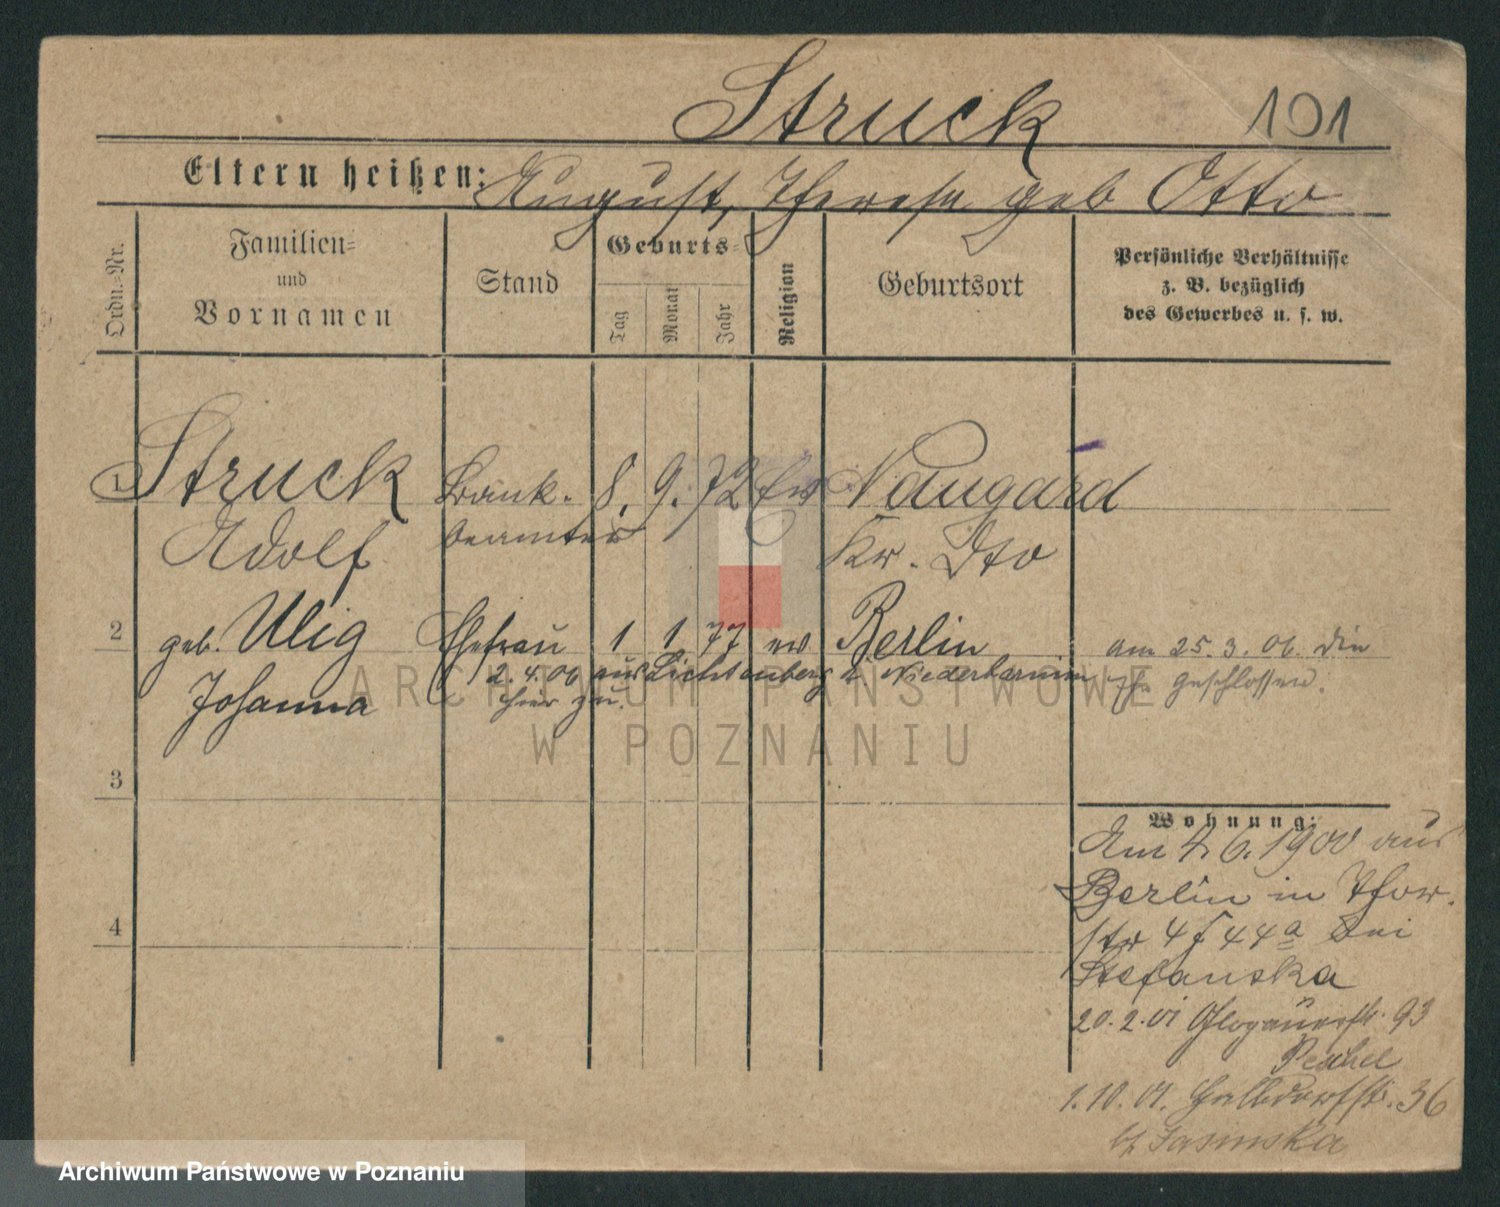 Struck
101
Eltern heißen: August, Therese geb Otto
Ordn.-Nr.
Familien-
und
Vornamen
Stand
Geburts-
Tag
Monat
Jahr
Religion
Geburtsort
Persönliche Verhältnisse
z. B. bezüglich
des Gewerbes u. s. w.
1 Struck Bank- 8. 9. 72 Ev Naugard
Adolf beamter Kr. Dto
2 geb. Ulig Ehefrau 1 1 77 ev Berlin am 25.3.06 die
Johanna 2.4.06 aus Lichtenberg Niederbarnim Ehe geschlossen.
hier zu.
ARCHIWUM PAŃSTWOWE
W POZNANIU
3
4
Wohnung:
Am 4.6.1900 aus
Berlin in
str 44a bei
Stefanska
20.2.01 Glogauerstr. 93
1.10.01. Halbdorfstr. 36
Archiwum Państwowe w Poznaniu